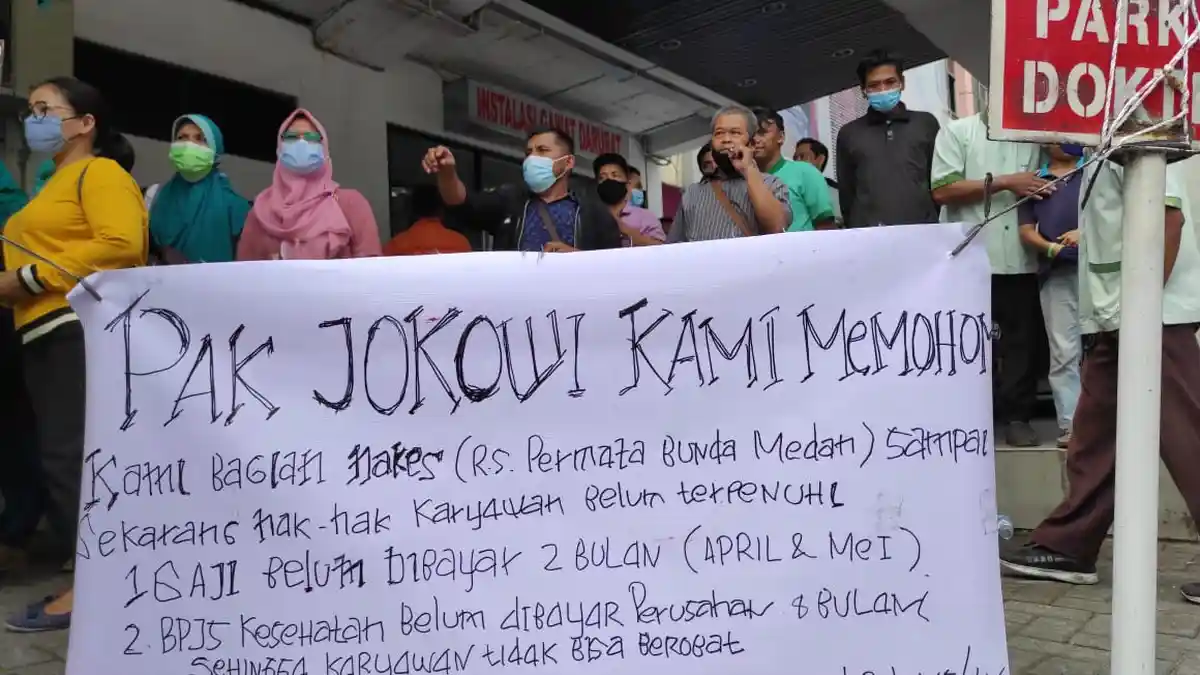 INSTALASI GAWAT DARURAT
PARK
DOKT
PAK JOKOWI KAMI MEMOHON
KAMI BAGIAN NAKES (R.S. PERMATA BUNDA MEDAN) SAMPAI
SEKARANG HAK-HAK KARYAWAN BELUM TERPENUHI
1 GAJI BELUM DIBAYAR 2 BULAN (APRIL & MEI)
2. BPJS KESEHATAN BELUM DIBAYAR PERUSAHAN 8 BULAN
SEHINGGA KARYAWAN TIDAK BISA BEROBAT